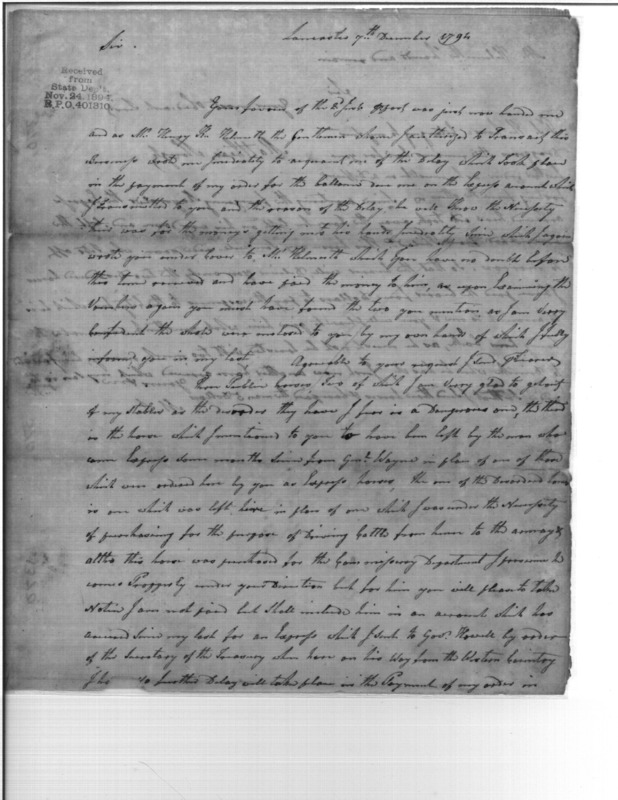 Lancaster 7th December 1794
Sir.
Received
from
State Dep't.
Nov. 24. 1894.
R.P.O. 401310.
Your favour of the was just now handed me
and as Mr. Henry Helmuth the Gentleman whom I authorised to Transact this
Business wrote me Imediatly to acquaint me of the Delay which Took place
in the payment of my order for the ballance due me on the Express account which
I transmitted to you and the reason of the Delay the Nessesity
there was for the money's getting into his hands Imediatly which I again
wrote you under Cover to Mr. Helmuth which you have no doubt before
this time received and have paid the money to him, as upon Examining the
Vouchers again you must have found the two you mention as I am very
confident the whole were to you by my own hands of which I fully
informed you in my last. Agreeable to your request I send
Public horses, Two of which I am very glad to get out
of my Stables as the disorder they have I fear is a Dangerous one, the third
is the horse which I mentioned to you to have been left by the man who
came Express some months since from Genl. Wayne in place of one of those
which were ordered here by you as Express horses the one of the Disordered
is one which was left here in place of one which I was under the Nessesity
of purchasing for the purpose of Driving Cattle from hence to the army &
altho this horse was purchased for the Commissary Department I presume he
comes Propperly under your Direction but for him you will please to take
Notice I am not paid but shall include him in an account which has
accrued since my last for an Express which I sent to Govr. Howell by order
of the Secretary of the Treasury when here on his Way from the Western Country
no further Delay will take place in the Payment of my order in